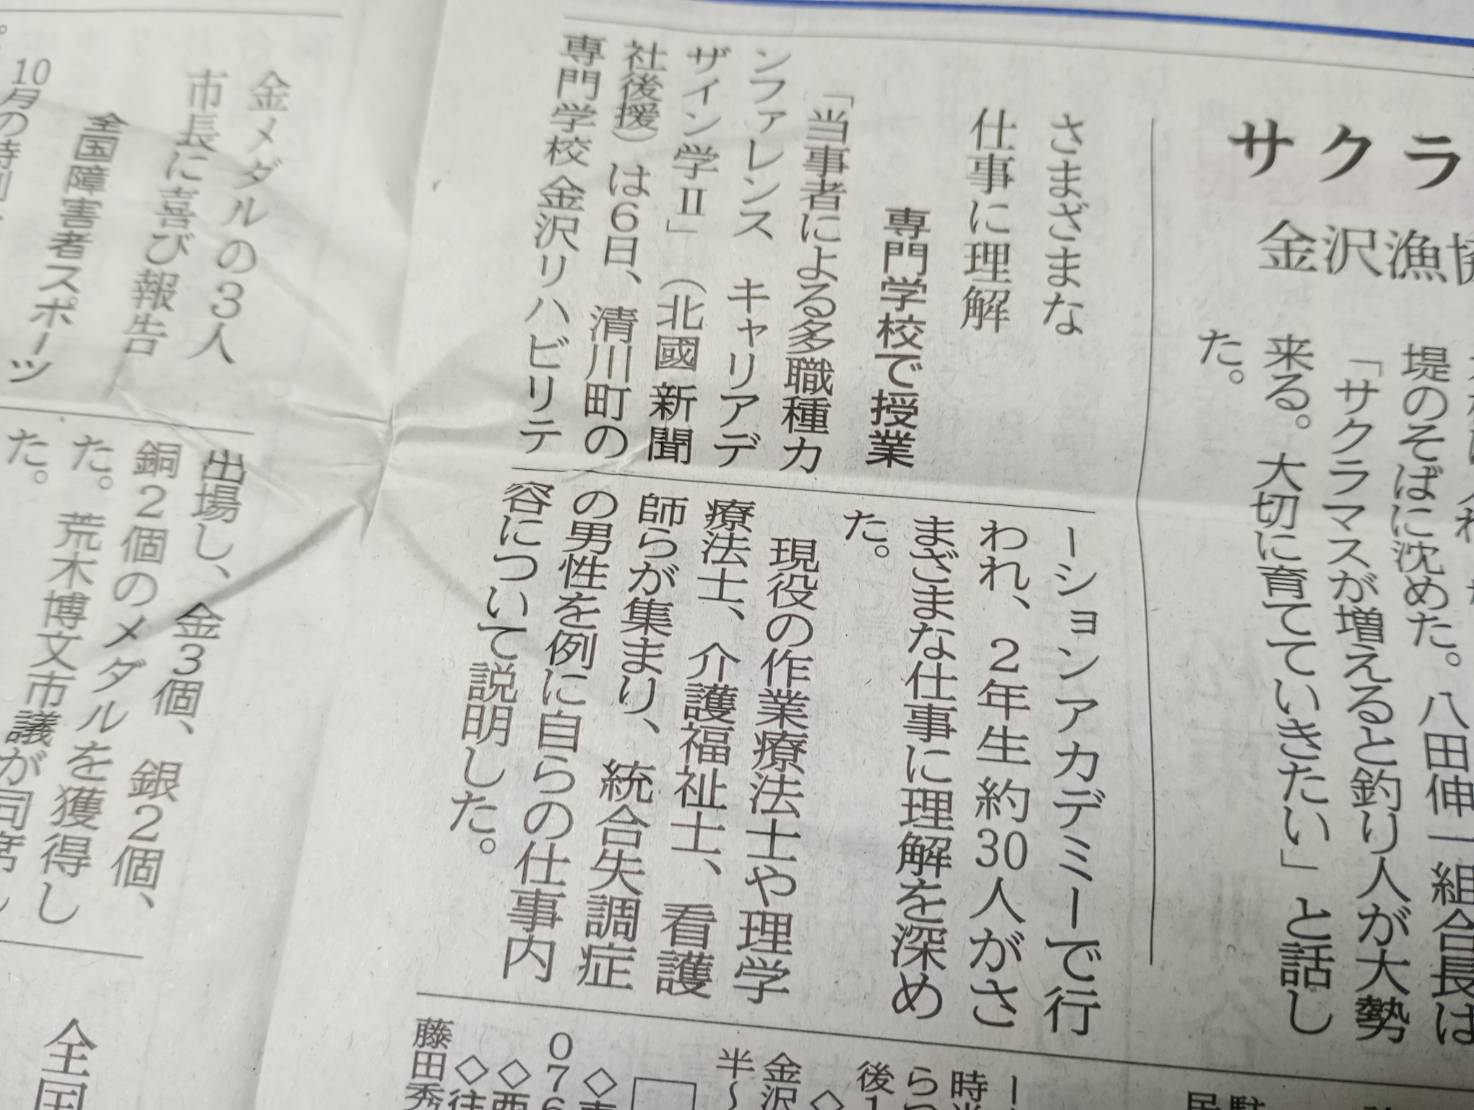 サクラ
金沢漁協
堤のそばに沈めた。八田伸一組合長は
「サクラマスが増えると釣り人が大勢
来る。大切に育てていきたい」と話し
た。
さまざまな
仕事に理解
専門学校で授業
「当事者による多職種カ
ンファレンス　キャリアデ
ザイン学Ⅱ」（北國新聞
社後援）は６日、清川町の
専門学校金沢リハビリテ
ーションアカデミーで行
われ、２年生約30人がさ
まざまな仕事に理解を深め
た。
現役の作業療法士や理学
療法士、介護福祉士、看護
師らが集まり、統合失調症
の男性を例に自らの仕事内
容について説明した。
金メダルの３人
市長に喜び報告
全国障害者スポーツ
10月の特別
出場し、金３個、銀２個、
銅２個のメダルを獲得し
た。荒木博文市議が同席し
た。
全国
時
後１
金沢
半～
０７６
藤田秀